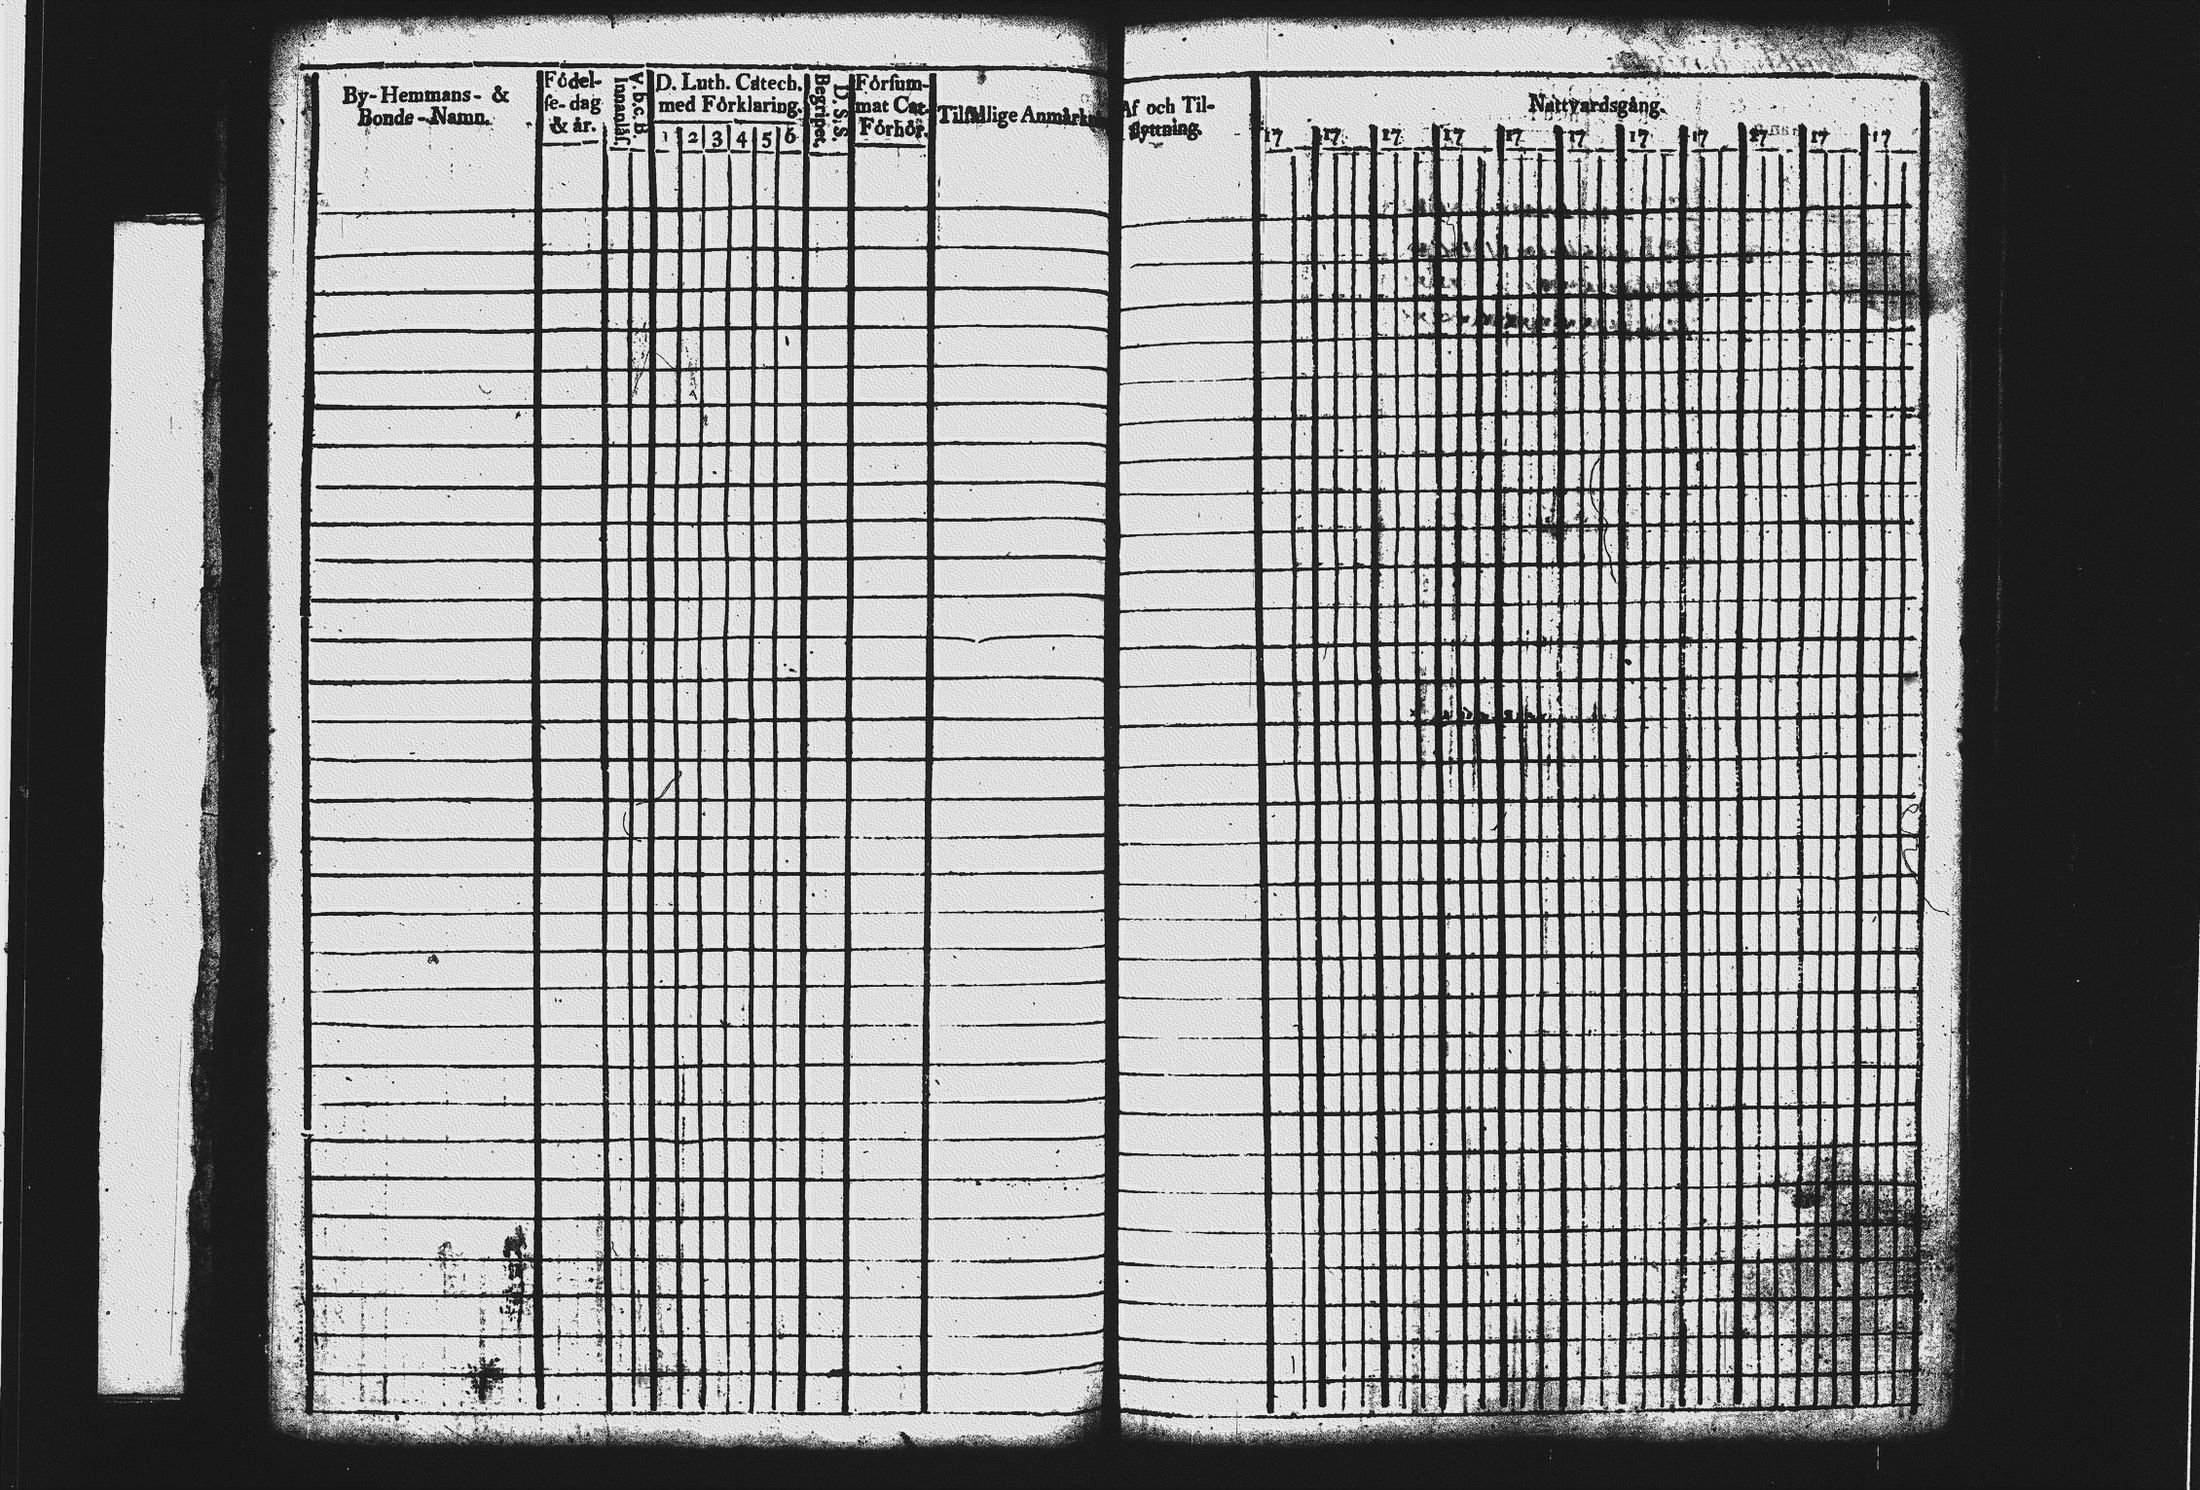 By-Hemmans- &
Bonde-Namn.
Fódel-
se-dag
& år.
V.b.c.B
Innanläs.
D. Luth. Catech.
med Fórklaring.
1 2 3 4 5 6
D.S.S.
Begripet.
Fórsum-
mat Cat.
Fórhór.
Tilfällige Anmärkn
Af och Til-
flyttning.
Nattvardsgång.
17 17 17 17 17 17 17 17 17 17 17